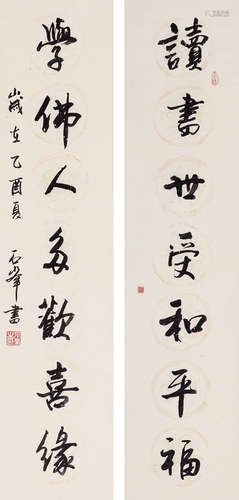 讀書世受和平福
學佛人多歡喜緣
歲在乙酉夏
石峯書